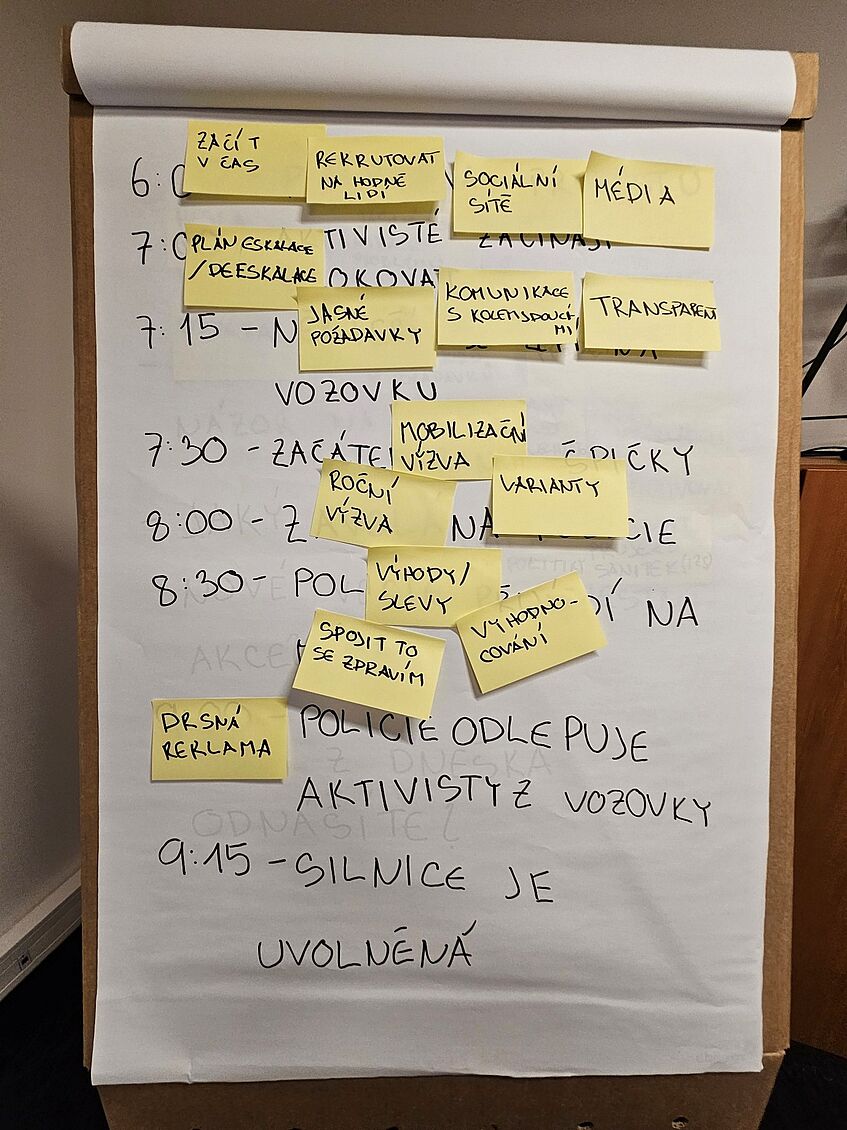 ZAČÍT
V ČAS
REKRUTOVAT
NA HODNĚ
LIDÍ
SOCIÁLNÍ
SÍTĚ
MÉDIA
PLÁN ESKALACE
/DEESKALACE
TIVISTÉ ZAČÍNAJÍ
OKOVAT
JASNÉ
POŽADAVKY
KOMUNIKACE
S KOLEMJDOUCÍ
MI
TRANSPARENT
7:15 - N
VOZOVKU
MOBILIZAČNÍ
VÍZVA
7:30 - ZAČÁTE ŠPIČKY
ROČNÍ
VÝZVA
VARIANTY
8:00 - Z NA CIE
VÝHODY/
SLEVY
8:30 - POL DÍ NA
VYHODNO-
COVÁNÍ
SPOJIT TO
SE ZDRAVÍM
DRSNÁ
REKLAMA
POLICIE ODLEPUJE
AKTIVISTY Z VOZOVKY
9:15 - SILNICE JE
UVOLNĚNÁ